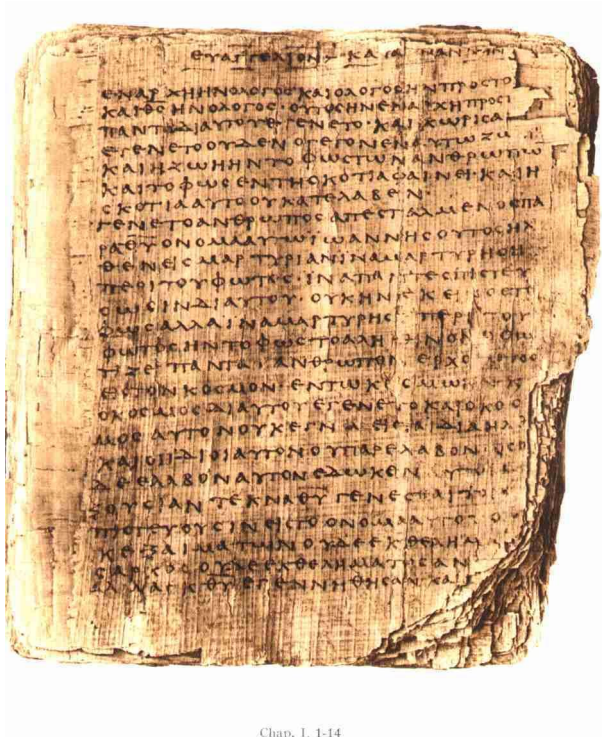 ΕΥΑΓΓΕΛΙΟΝ ΚΑΤΑ ΑΝΝΗΝ
ΕΝΑΡΧΗΗΝΟΛΟΓΟϹΚΑΙΟΛΟΓΟϹΗΝΠΡΟϹΤΟ
ΚΑΙΘϹΗΝΟΛΟΓΟϹ·ΟΥΤΟϹΗΝΕΝΑΡΧΗΠΡΟϹΤ
ΠΑΝΤΑΔΙΑΥΤΟΥΕΓΕΝΕΤΟ·ΚΑΙΧΩΡΙϹΑ
ΕΓΕΝΕΤΟΟΥΔΕΝΟΓΕΓΟΝΕΝΑΥΤΩΖΩ
ΚΑΙΗΖΩΗΗΝΤΟΦΩϹΤΩΝΑΝΘΡΩΠΩ
ΚΑΙΤΟΦΩϹΕΝΤΗϹΚΟΤΙΑΦΑΙΝΕΙ·ΚΑΙΗ
ϹΚΟΤΙΑΑΥΤΟΟΥΚΑΤΕΛΑΒΕΝ·
ΓΕΝΕΤΟΑΝΘΡΩΠΟϹΑΠΕϹΤΑΛΜΕΝΟϹΠΑ
ΡΑΘΥΟΝΟΜΑΑΥΤΩΙΩΑΝΝΗϹΟΥΤΟϹΗΛ
ΘΕΝΕΙϹΜΑΡΤΥΡΙΑΝΙΝΑΜΑΡΤΥΡΗϹΗ
ΠΕΡΙΤΟΥΦΩΤΟϹ·ΙΝΑΠΑΝΤΕϹΠΙϹΤΕΥ
ϹΩϹΙΝΔΙΑΥΤΟΥ·ΟΥΚΗΝΕΚΕΙΝΟϹΤΟ
ΦΩϹΑΛΛΑΙΝΑΜΑΡΤΥΡΗϹΗΠΕΡΙΤΟΥ
ΦΩΤΟϹΗΝΤΟΦΩϹΤΟΑΛΗΘΙΝΟΝΟΦΩ
ΤΙΖΕΙΠΑΝΤΑΑΝΘΡΩΠΟΝΕΡΧΟΜΕΝΟ
ΕΙϹΤΟΝΚΟϹΜΟΝ·ΕΝΤΩΚΟϹΜΩΗΝΚΑΙ
ΟΚΟϹΜΟϹΔΙΑΥΤΟΥΕΓΕΝΕΤΟΚΑΙΟΚΟϹ
ΜΟϹΑΥΤΟΝΟΥΚΕΓΝΩΕΙϹΤΑΙΔΙΑΗΛ
ΚΑΙΟΙΙΔΙΟΙΑΥΤΟΝΟΥΠΑΡΕΛΑΒΟΝΟϹΟ
ΔΕΕΛΑΒΟΝΑΥΤΟΝΕΔΩΚΕΝΑΥΤΟΙ
ΞΟΥϹΙΑΝΤΕΚΝΑΘΥΓΕΝΕϹΘΑΙΤΟΙϹ
ΠΙϹΤΕΥΟΥϹΙΝΕΙϹΤΟΟΝΟΜΑΑΥΤΟΥΟ
ΚΕΞΑΙΜΑΤΩΝΟΥΔΕΕΚΘΕΛΗΜΑ
ϹΑΡΚΟϹΟΥΔΕΕΚΘΕΛΗΜΑΤΟϹΑΝ
ΑΛΛΑΕΚΘΥΕΓΕΝΝΗΘΗϹΑΝΚΑΙ
Chap. I, 1-14